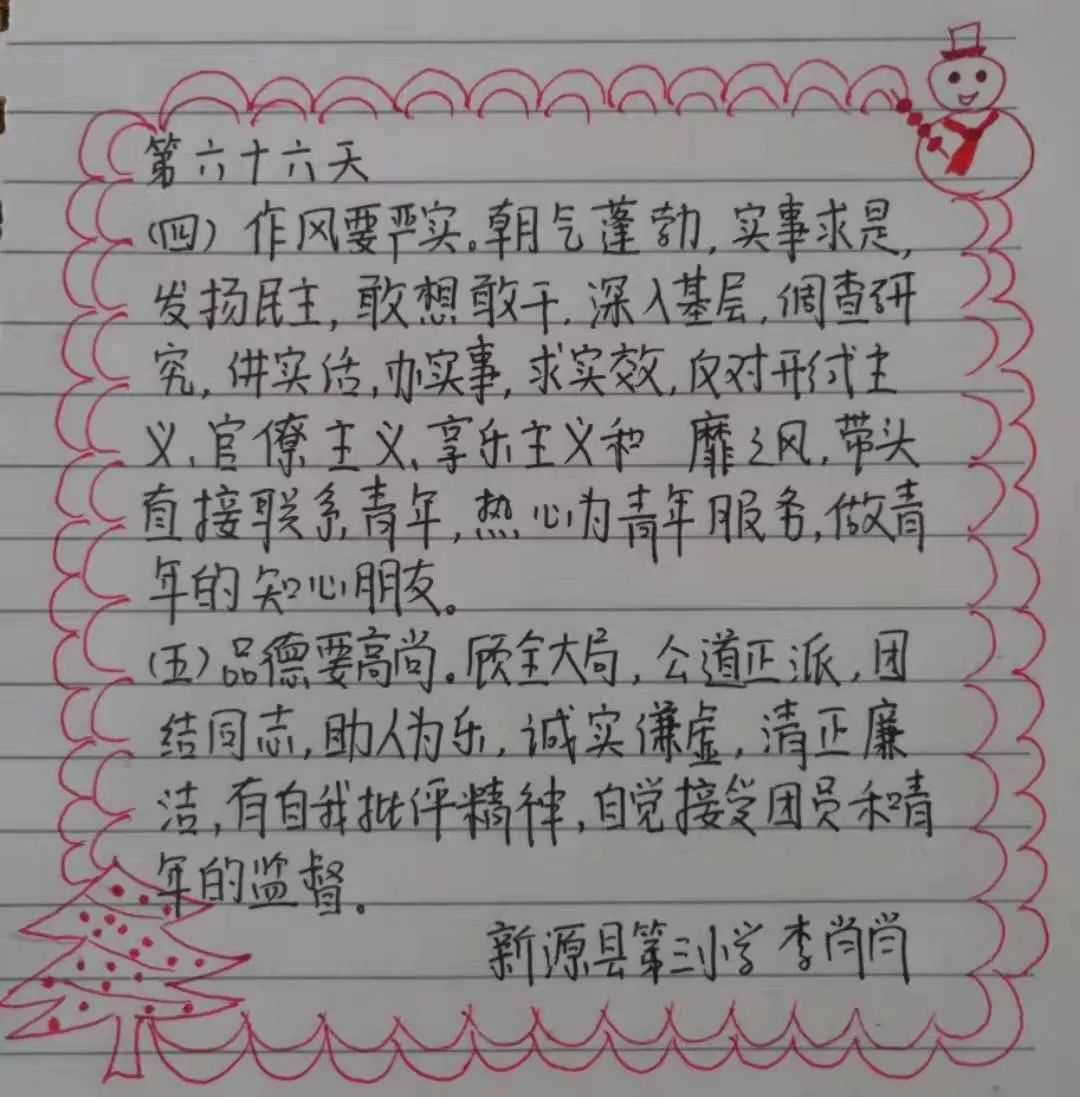 第六十六天
(四)作风要严实。朝气蓬勃,实事求是,
发扬民主,敢想敢干,深入基层,调查研
究,讲实话,办实事,求实效,反对形式主
义、官僚主义、享乐主义和 靡之风,带头
直接联系青年,热心为青年服务,做青
年的知心朋友。
(五)品德要高尚。顾全大局,公道正派,团
结同志,助人为乐,诚实谦虚,清正廉
洁,有自我批评精神,自觉接受团员和青
年的监督。
新源县第三小学 李尚尚